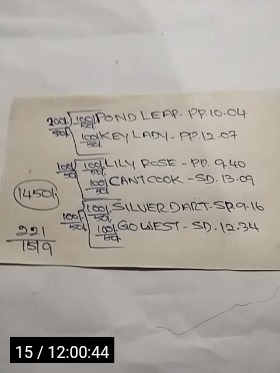 200/- 100/- POND LEAP - PP. 10.04
50/- 50/-
100/- KEY LADY - PP. 12.07
50/-
100/- 100/- LILY ROSE - PP. 9.40
50/- 50/-
100/- CANT COOK - SD. 13.09
50/-
1450/-
100/- SILVER DART - SP. 9.16
100/- 50/-
50/- 100/- GO WEST - SD. 12.34
50/-
221
1519
15 / 12:00:44